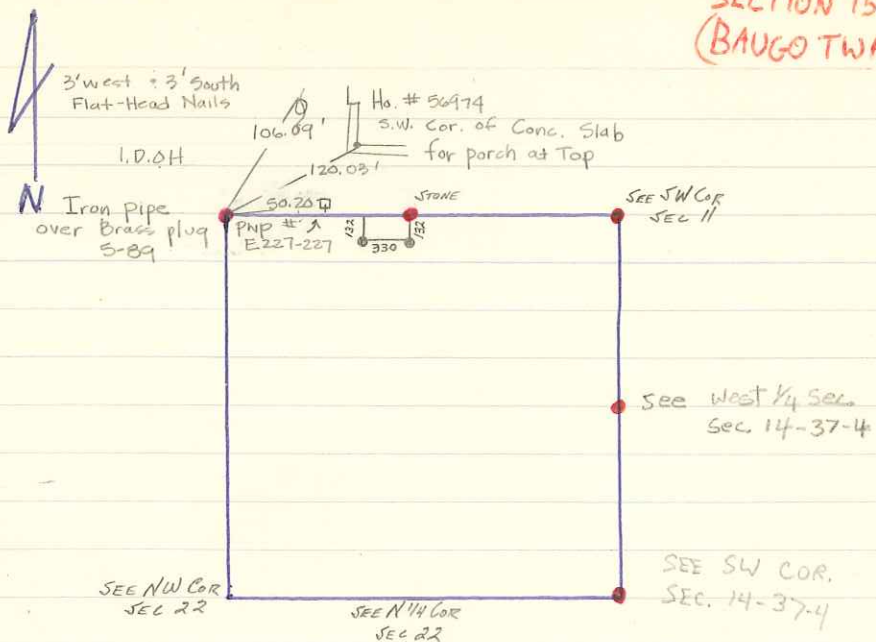 SECTION 15
(BAUGO TWP
3' west & 3' South
Flat-Head Nails
I.D.O.H
N
Iron pipe
over Brass plug
5-89
106.09'
120.03'
50.20
Ho. # 56974
S.W. Cor. of Conc. Slab
for porch at Top
PNP #
E227-227
STONE
132
330
132
SEE SW COR
SEC 11
See West 1/4 Sec.
Sec. 14-37-4
SEE SW COR.
SEC. 14-37-4
SEE NW COR
SEC 22
SEE N 1/4 COR
SEC 22